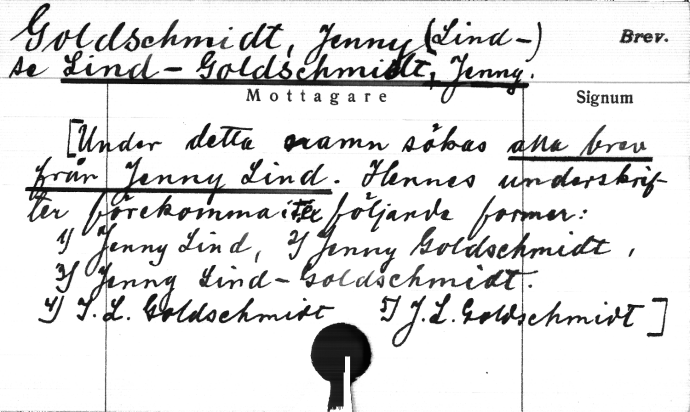 Goldschmidt, Jenny (Lind-) Brev.
se Lind-Goldschmidt, Jenny.
Mottagare Signum
[Under detta namn sökas alla brev
från Jenny Lind. Hennes underskrif-
ter förekomma i följande former:
1) Jenny Lind, 2) Jenny Goldschmidt,
3) Jenny Lind-Goldschmidt.
4) J. L. Goldschmidt 5) J. L. Goldschmidt]